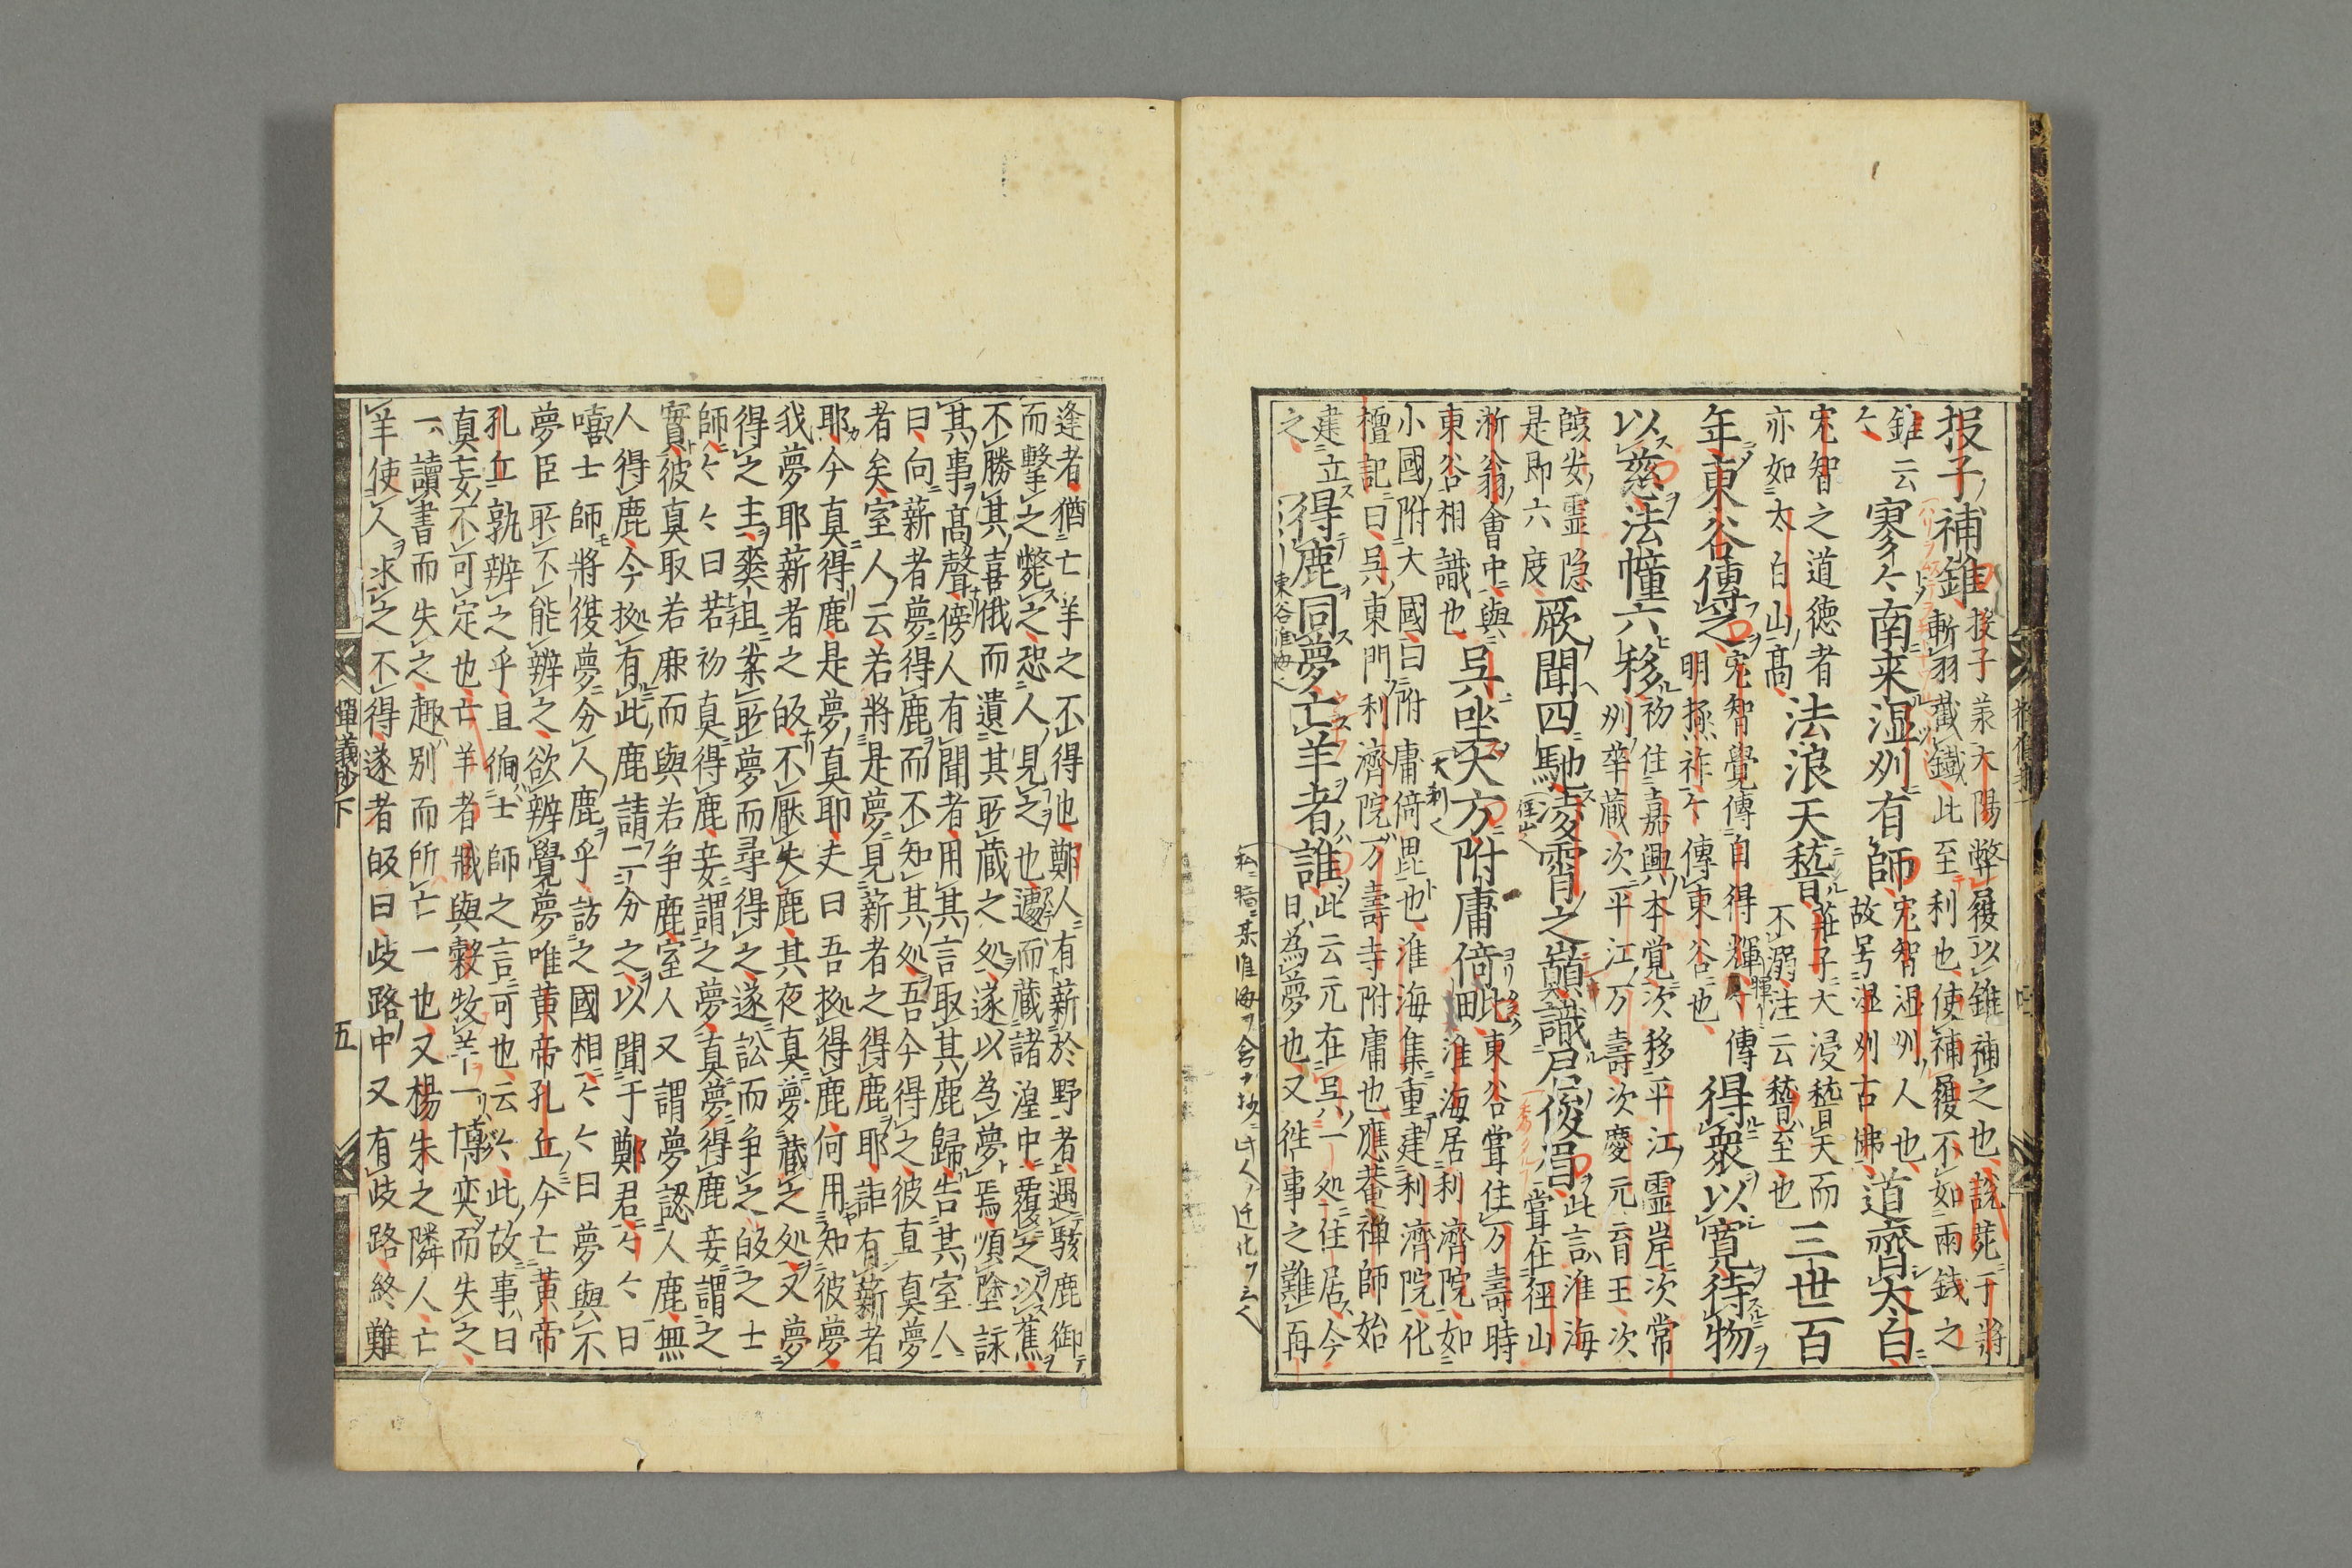 投子補錐
投子義大陽弊履以錐補之也、說苑ニ干將
錐云
斬羽截鐵、此至利也、使補履不如兩錢之
〻
寥〻南来湿刕有師
宏智湿刕人也
故号湿刕古佛
道齊太白
宏智之道徳者
亦如太白山高
法浪天嵆
莊子大浸嵆天而
不溺注云嵆至也
三世百
年東谷傳之
宏智覺傳自得輝〻傳
明極祚〻傳東谷也
得衆以寛待物
以慈法幢六移
初住嘉興本覺次移平江靈岸次常
刕華蔵次平江万壽次慶元育王次
臨安靈隠
是即六度
厥聞四馳凌霄之巓識居俊眉
此言淮海
嘗在径山
淅翁會中與東谷嘗住万壽時
東谷相識也
呉呰天方附庸倚毘
淮海居利濟院如
小國附大國曰附庸倚毘也淮海集重建利濟院化
檀記曰呉東門利濟院万壽寺附庸也應菴禅師始
建立
之
得鹿同夢亡羊者誰
此云元在呉一処住居今
日為夢也又徃事之難再
東谷淮海
逢者猶亡羊之不得也鄭人有薪於野者遇駭鹿御
而擊之斃之恐人見之也遽而蔵諸湟中覆之以蕉
不勝其喜俄而遺其所蔵之処遂以為夢焉順塗詠
其事高聲傍人有聞者用其言取其鹿歸告其室人
曰向薪者夢得鹿而不知其処吾今得之彼直真夢
者矣室人云若將是夢見薪者之得鹿耶詎有薪者
耶今真得鹿是夢真耶夫曰吾拠得鹿何用知彼夢
我夢耶薪者之皈不厭失鹿其夜真夢蔵之処又夢
得之主爽旦案所夢而尋得之遂訟而争之皈之士
師〻曰若初真得鹿妄謂之夢真夢得鹿妄謂之
實彼真取若鹿而與若争鹿室人又謂夢認人鹿無
人得鹿今拠有此鹿請二分之以聞于鄭君〻曰
嘻士師將復夢分人鹿乎訪之國相〻曰夢與不
夢臣所不能辨之欲辨覺夢唯黄帝孔丘今亡黄帝
孔丘孰辨之乎且侚士師之言可也云〻此故事曰
真妄不可定也亡羊者臧與穀牧羊一博奕而失之
一讀書而失之趣別而所亡一也又楊朱之隣人亡
羊使人求之不得遂者皈曰歧路中又有歧路終難
禪儀抄下
五